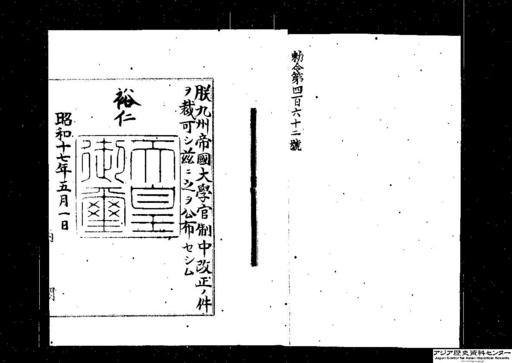 勅令第四百六十二號
朕九州帝國大學官制中改正ノ件
ヲ裁可シ茲ニ之ヲ公布セシム
裕仁
天皇御璽
昭和十七年五月一日
内閣
アジア歴史資料センター
Japan Center for Asian Historical Records